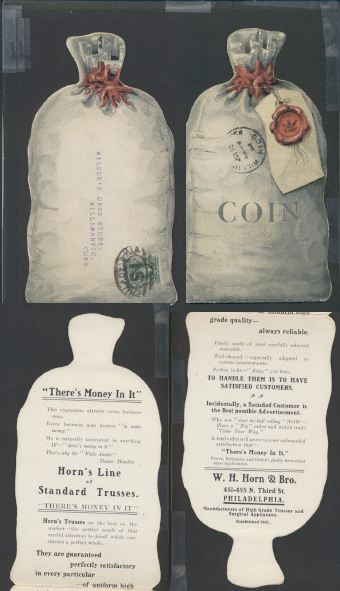 WILSON'S DRUG STORE,
WILLIMANTIC,
CONN.
COIN
"There's Money In It"
This expression attracts every business
man.
Every business man desires "to make
money"
He is naturally interested in anything
IF "there's money in it"
That's why the "Wide-Awake"
Dealer Handles
Horn's Line
of
Standard Trusses.
"THERE'S MONEY IN IT"
Horn's Trusses are the best on the
market—the perfect result of that
careful attention to detail which con-
stitutes a perfect whole.
They are guaranteed
perfectly satisfactory
in every particular
—of uniform high
grade quality—
always reliable.
Finely made of most carefully selected
materials.
Well-shaped—especially adapted to
various requirements.
Perfect in fit—"Easy," yet firm.
TO HANDLE THEM IS TO HAVE
SATISFIED CUSTOMERS.
Incidentally, a Satisfied Customer is
the Best possible Advertisement.
Why not "start the ball rolling" NOW—
Place a "Try" order and watch trade
"Come Your Way"
A trial order will prove to your unbounded
satisfaction that
"There's Money In It."
Prices, Estimates and Details gladly forwarded
upon application.
W. H. Horn & Bro.
451-453 N. Third St.
PHILADELPHIA.
Manufacturers of High Grade Trusses and
Surgical Appliances.
Established 1842.